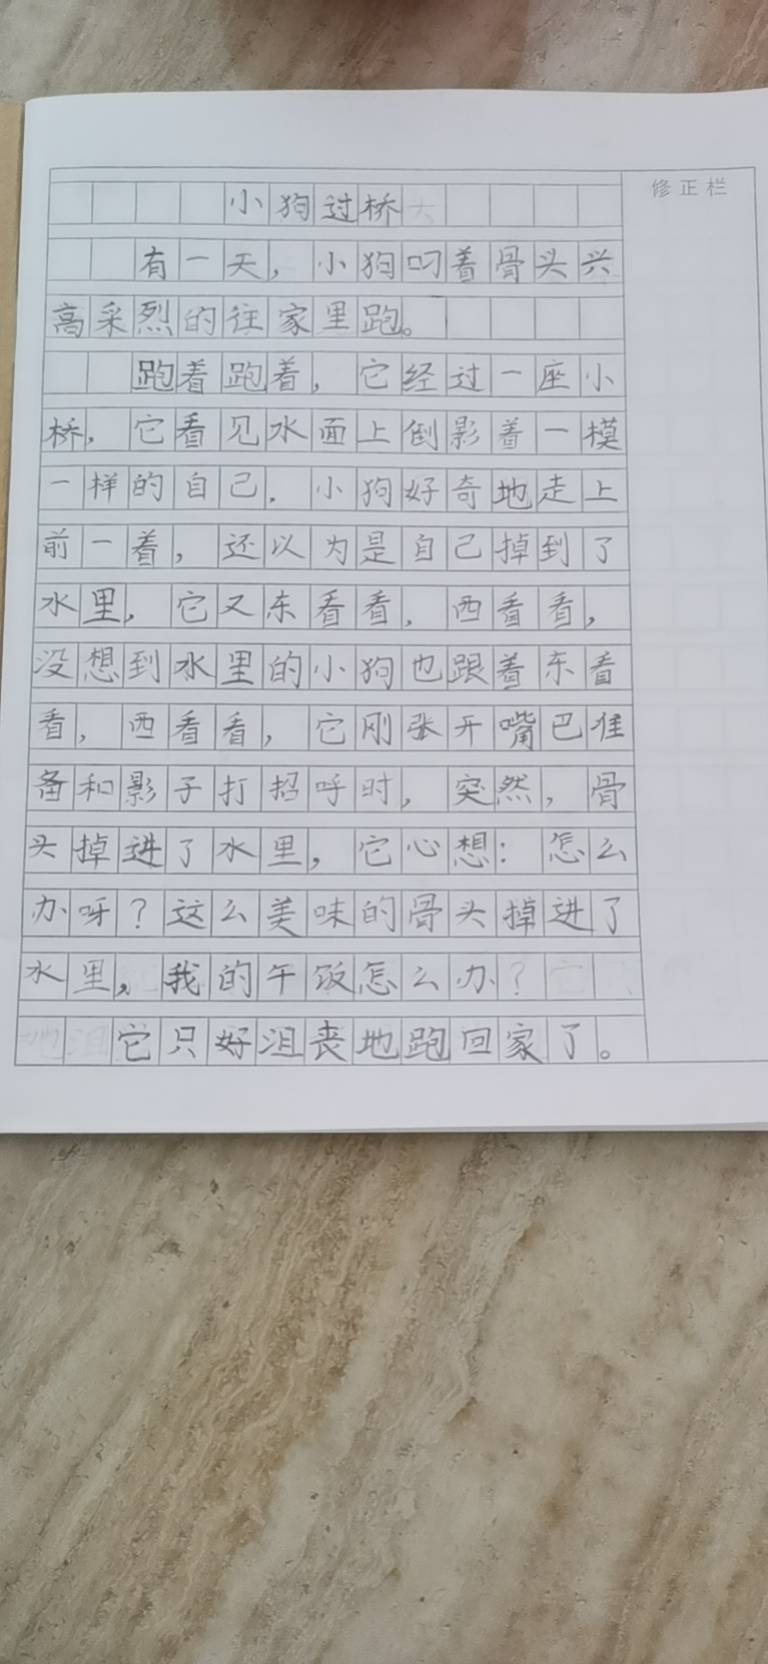 修正栏
小狗过桥
有一天，小狗叼着骨头兴
高采烈的往家里跑。
跑着跑着，它经过一座小
桥，它看见水面上倒影着一模
一样的自己。小狗好奇地走上
前一着，还以为是自己掉到了
水里，它又东看看，西看看，
没想到水里的小狗也跟着东看
看，西看看，它刚张开嘴巴准
备和影子打招呼时，突然，骨
头掉进了水里，它心想：怎么
办呀？这么美味的骨头掉进了
水里，我的午饭怎么办？
它只好沮丧地跑回家了。